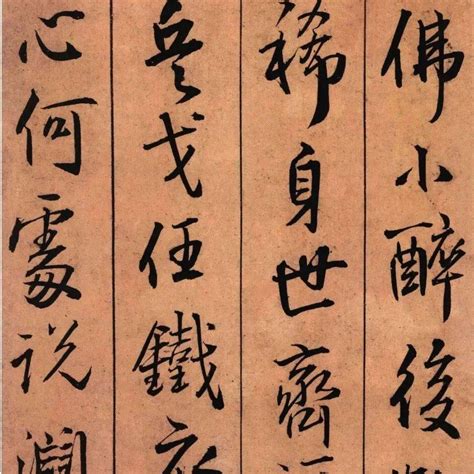 佛小醉後
稀身世齊
兵戈任鐵衣
心何處說瀾